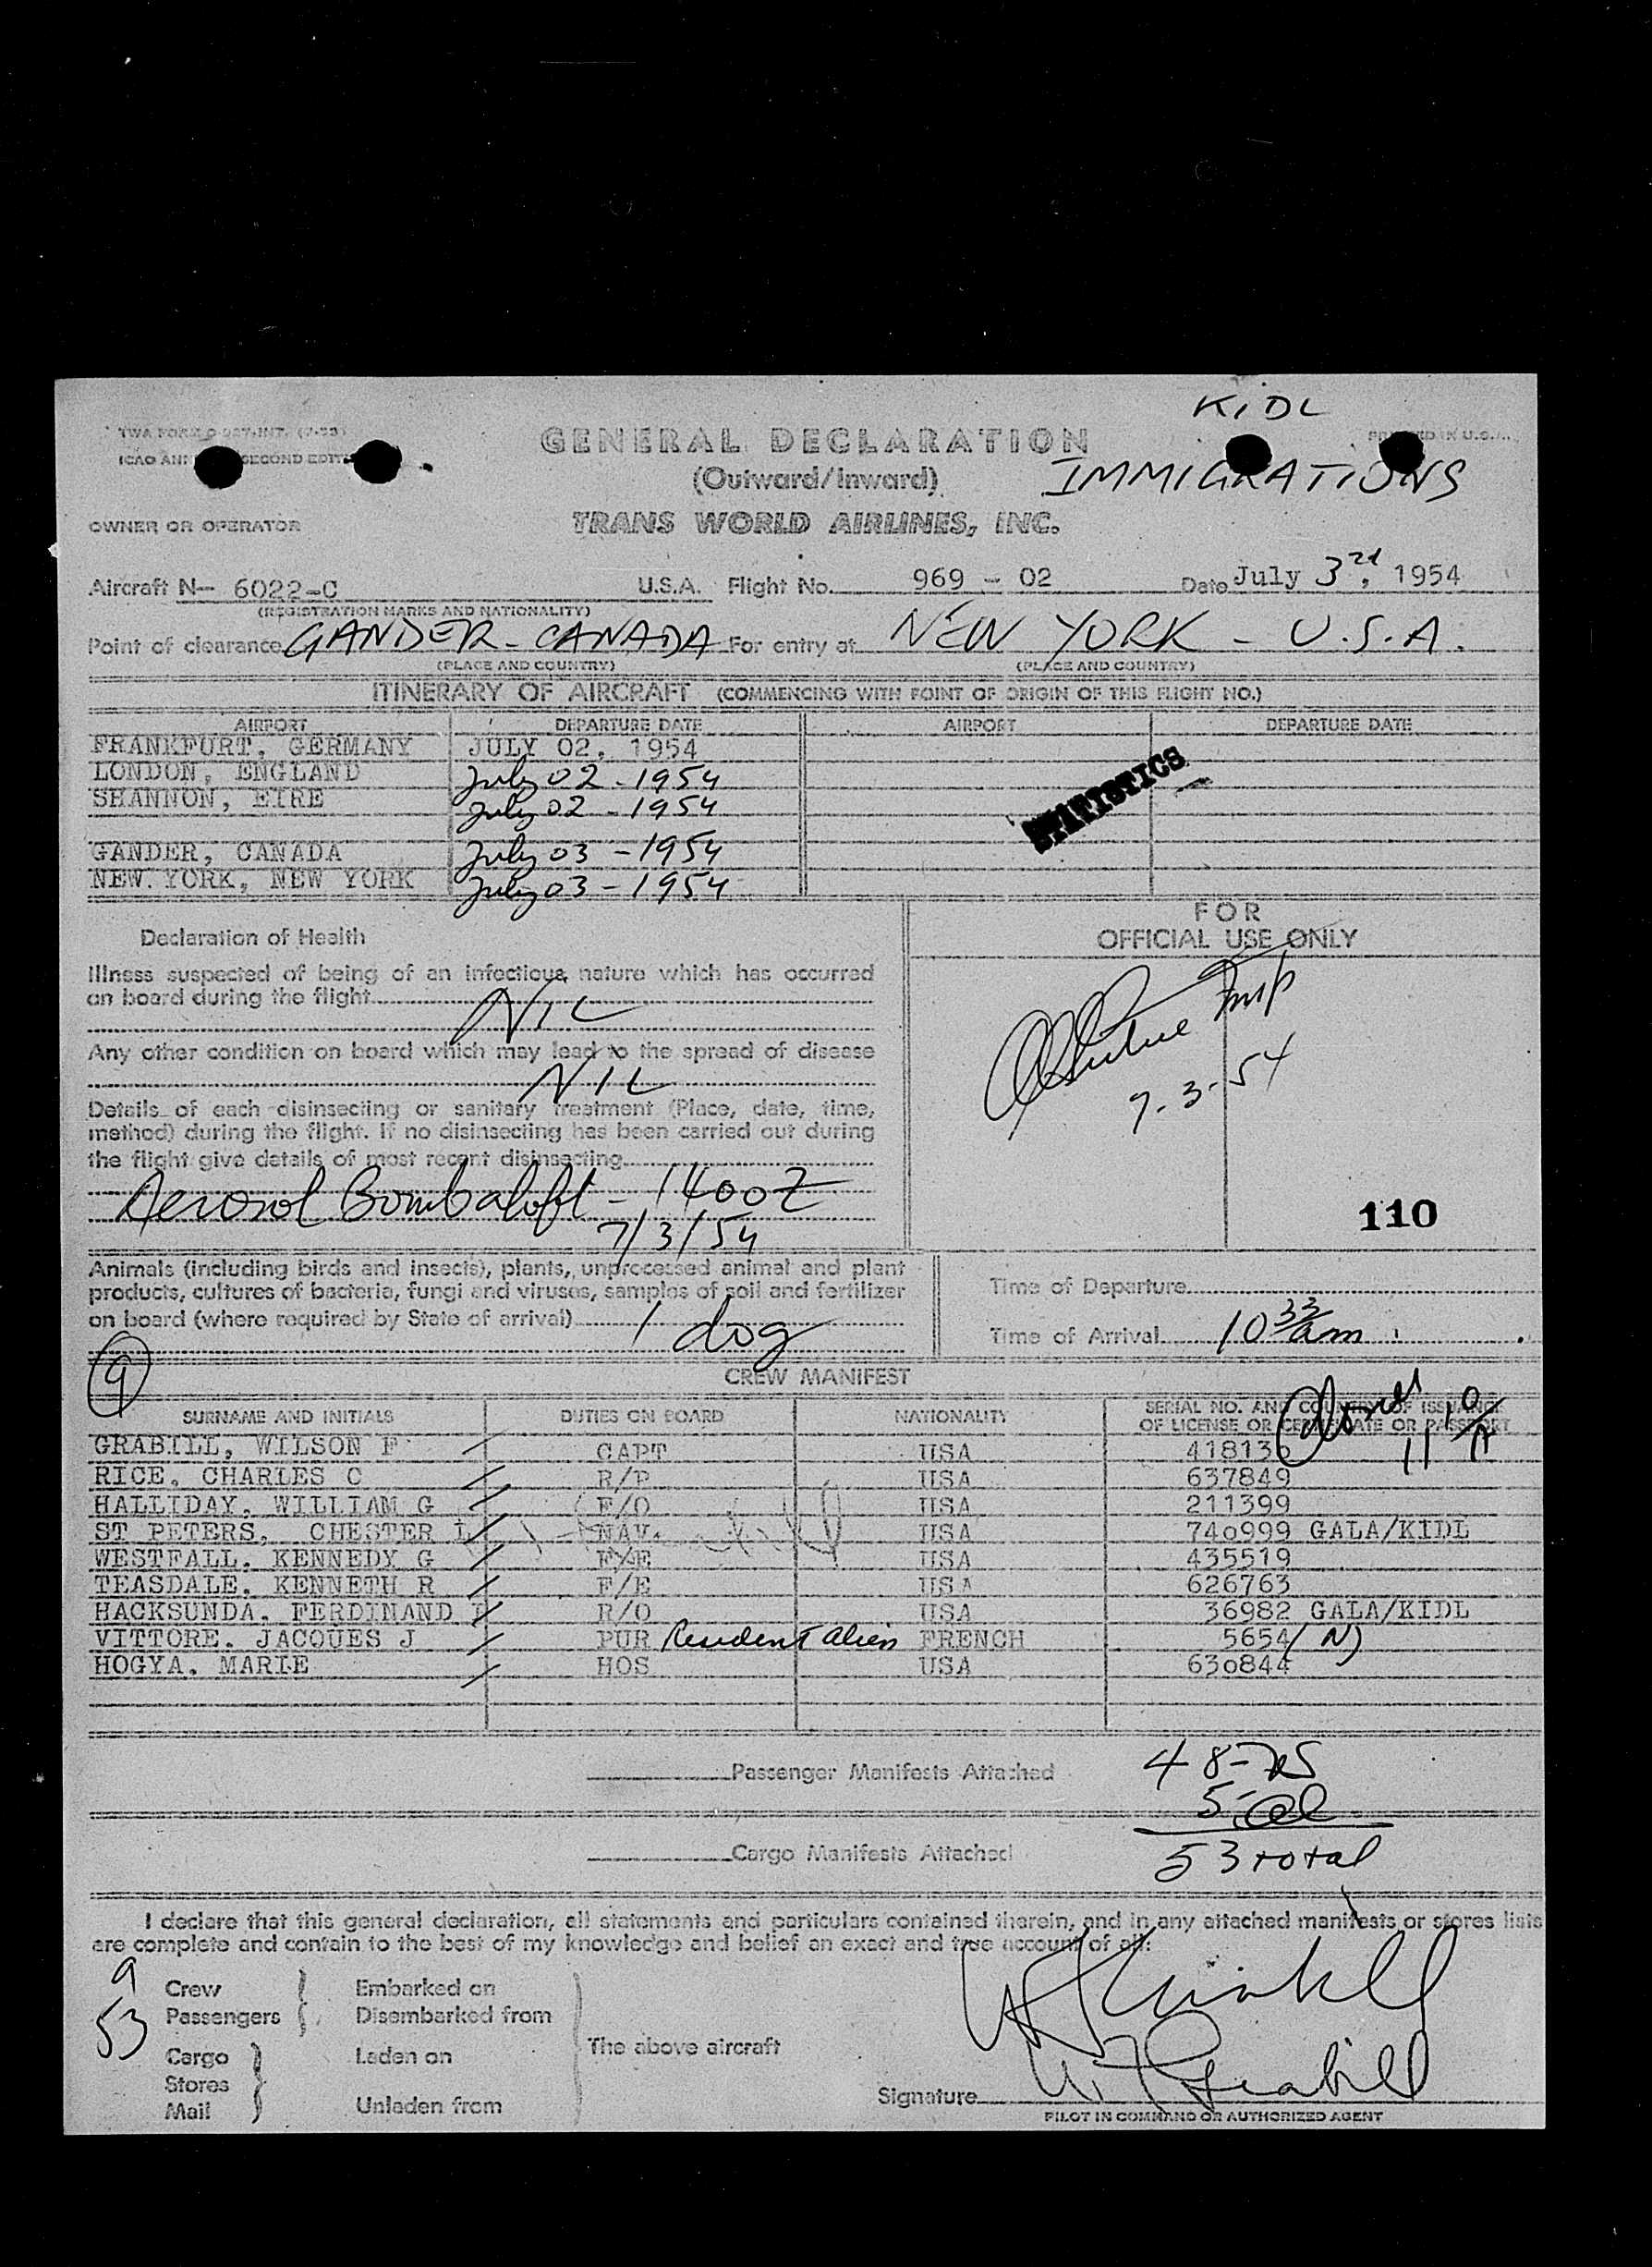 KIDL
TWA FORM
GENERAL DECLARATION
PRINTED IN U.S.A.
SECOND EDITION
(Outward/Inward)
IMMIGRATIONS
OWNER OR OPERATOR
TRANS WORLD AIRLINES, INC.
Aircraft N- 6022-C U.S.A. Flight No. 969 - 02 Date July 3rd, 1954
(REGISTRATION MARKS AND NATIONALITY)
Point of clearance GANDER - CANADA For entry at NEW YORK - U.S.A.
(PLACE AND COUNTRY) (PLACE AND COUNTRY)
ITINERARY OF AIRCRAFT (COMMENCING WITH POINT OF ORIGIN OF THIS FLIGHT NO.)
AIRPORT DEPARTURE DATE AIRPORT DEPARTURE DATE
FRANKFURT, GERMANY JULY 02, 1954
LONDON, ENGLAND July 02 - 1954
SHANNON, EIRE July 02 - 1954
STATISTICS
GANDER, CANADA July 03 - 1954
NEW YORK, NEW YORK July 03 - 1954
FOR
OFFICIAL USE ONLY
Declaration of Health
Illness suspected of being of an infectious nature which has occurred
on board during the flight
NIL
Any other condition on board which may lead to the spread of disease
NIL
7-3-54
Details of each disinsecting or sanitary treatment (Place, date, time,
method) during the flight. If no disinsecting has been carried out during
the flight give details of most recent disinsecting
Aerosol Bomb aloft - 1400Z
7/3/54
110
Animals (including birds and insects), plants, unprocessed animal and plant
products, cultures of bacteria, fungi and viruses, samples of soil and fertilizer
on board (where required by State of arrival) 1 dog
Time of Departure
Time of Arrival 10 33 am
9
CREW MANIFEST
SURNAME AND INITIALS DUTIES ON BOARD NATIONALITY SERIAL NO. AND COUNTRY OF ISSUANCE
OF LICENSE OR CERTIFICATE OR PASSPORT
GRABILL, WILSON F CAPT USA 418136
RICE, CHARLES C R/P USA 637849
HALLIDAY, WILLIAM G F/O USA 211399
ST PETERS, CHESTER L NAV USA 740999 GALA/KIDL
WESTFALL, KENNEDY G F/E USA 435519
TEASDALE, KENNETH R F/E USA 626763
HACKSUNDA, FERDINAND I R/O USA 36982 GALA/KIDL
VITTORE, JACQUES J PUR Resident alien FRENCH 5654 (N)
HOGYA, MARIE HOS USA 630844
Passenger Manifests Attached
48-
5-al
53 total
Cargo Manifests Attached
I declare that this general declaration, all statements and particulars contained therein, and in any attached manifests or stores lists
are complete and contain to the best of my knowledge and belief an exact and true account of all:
9 Crew Embarked on
53 Passengers Disembarked from
The above aircraft
Cargo Laden on
Stores
Mail Unladen from
Signature W. F. Grabill
PILOT IN COMMAND OR AUTHORIZED AGENT